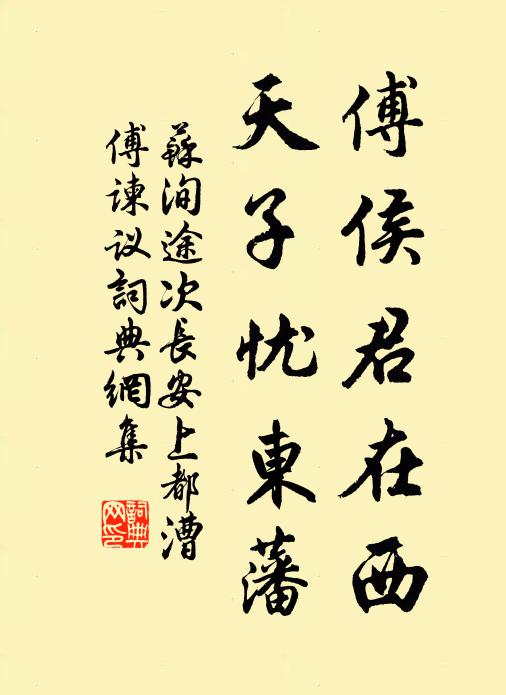 傅侯君在西
天子忧東藩
蘇洵途次長安上都漕
傅諫议詞典網集
詞典
网印